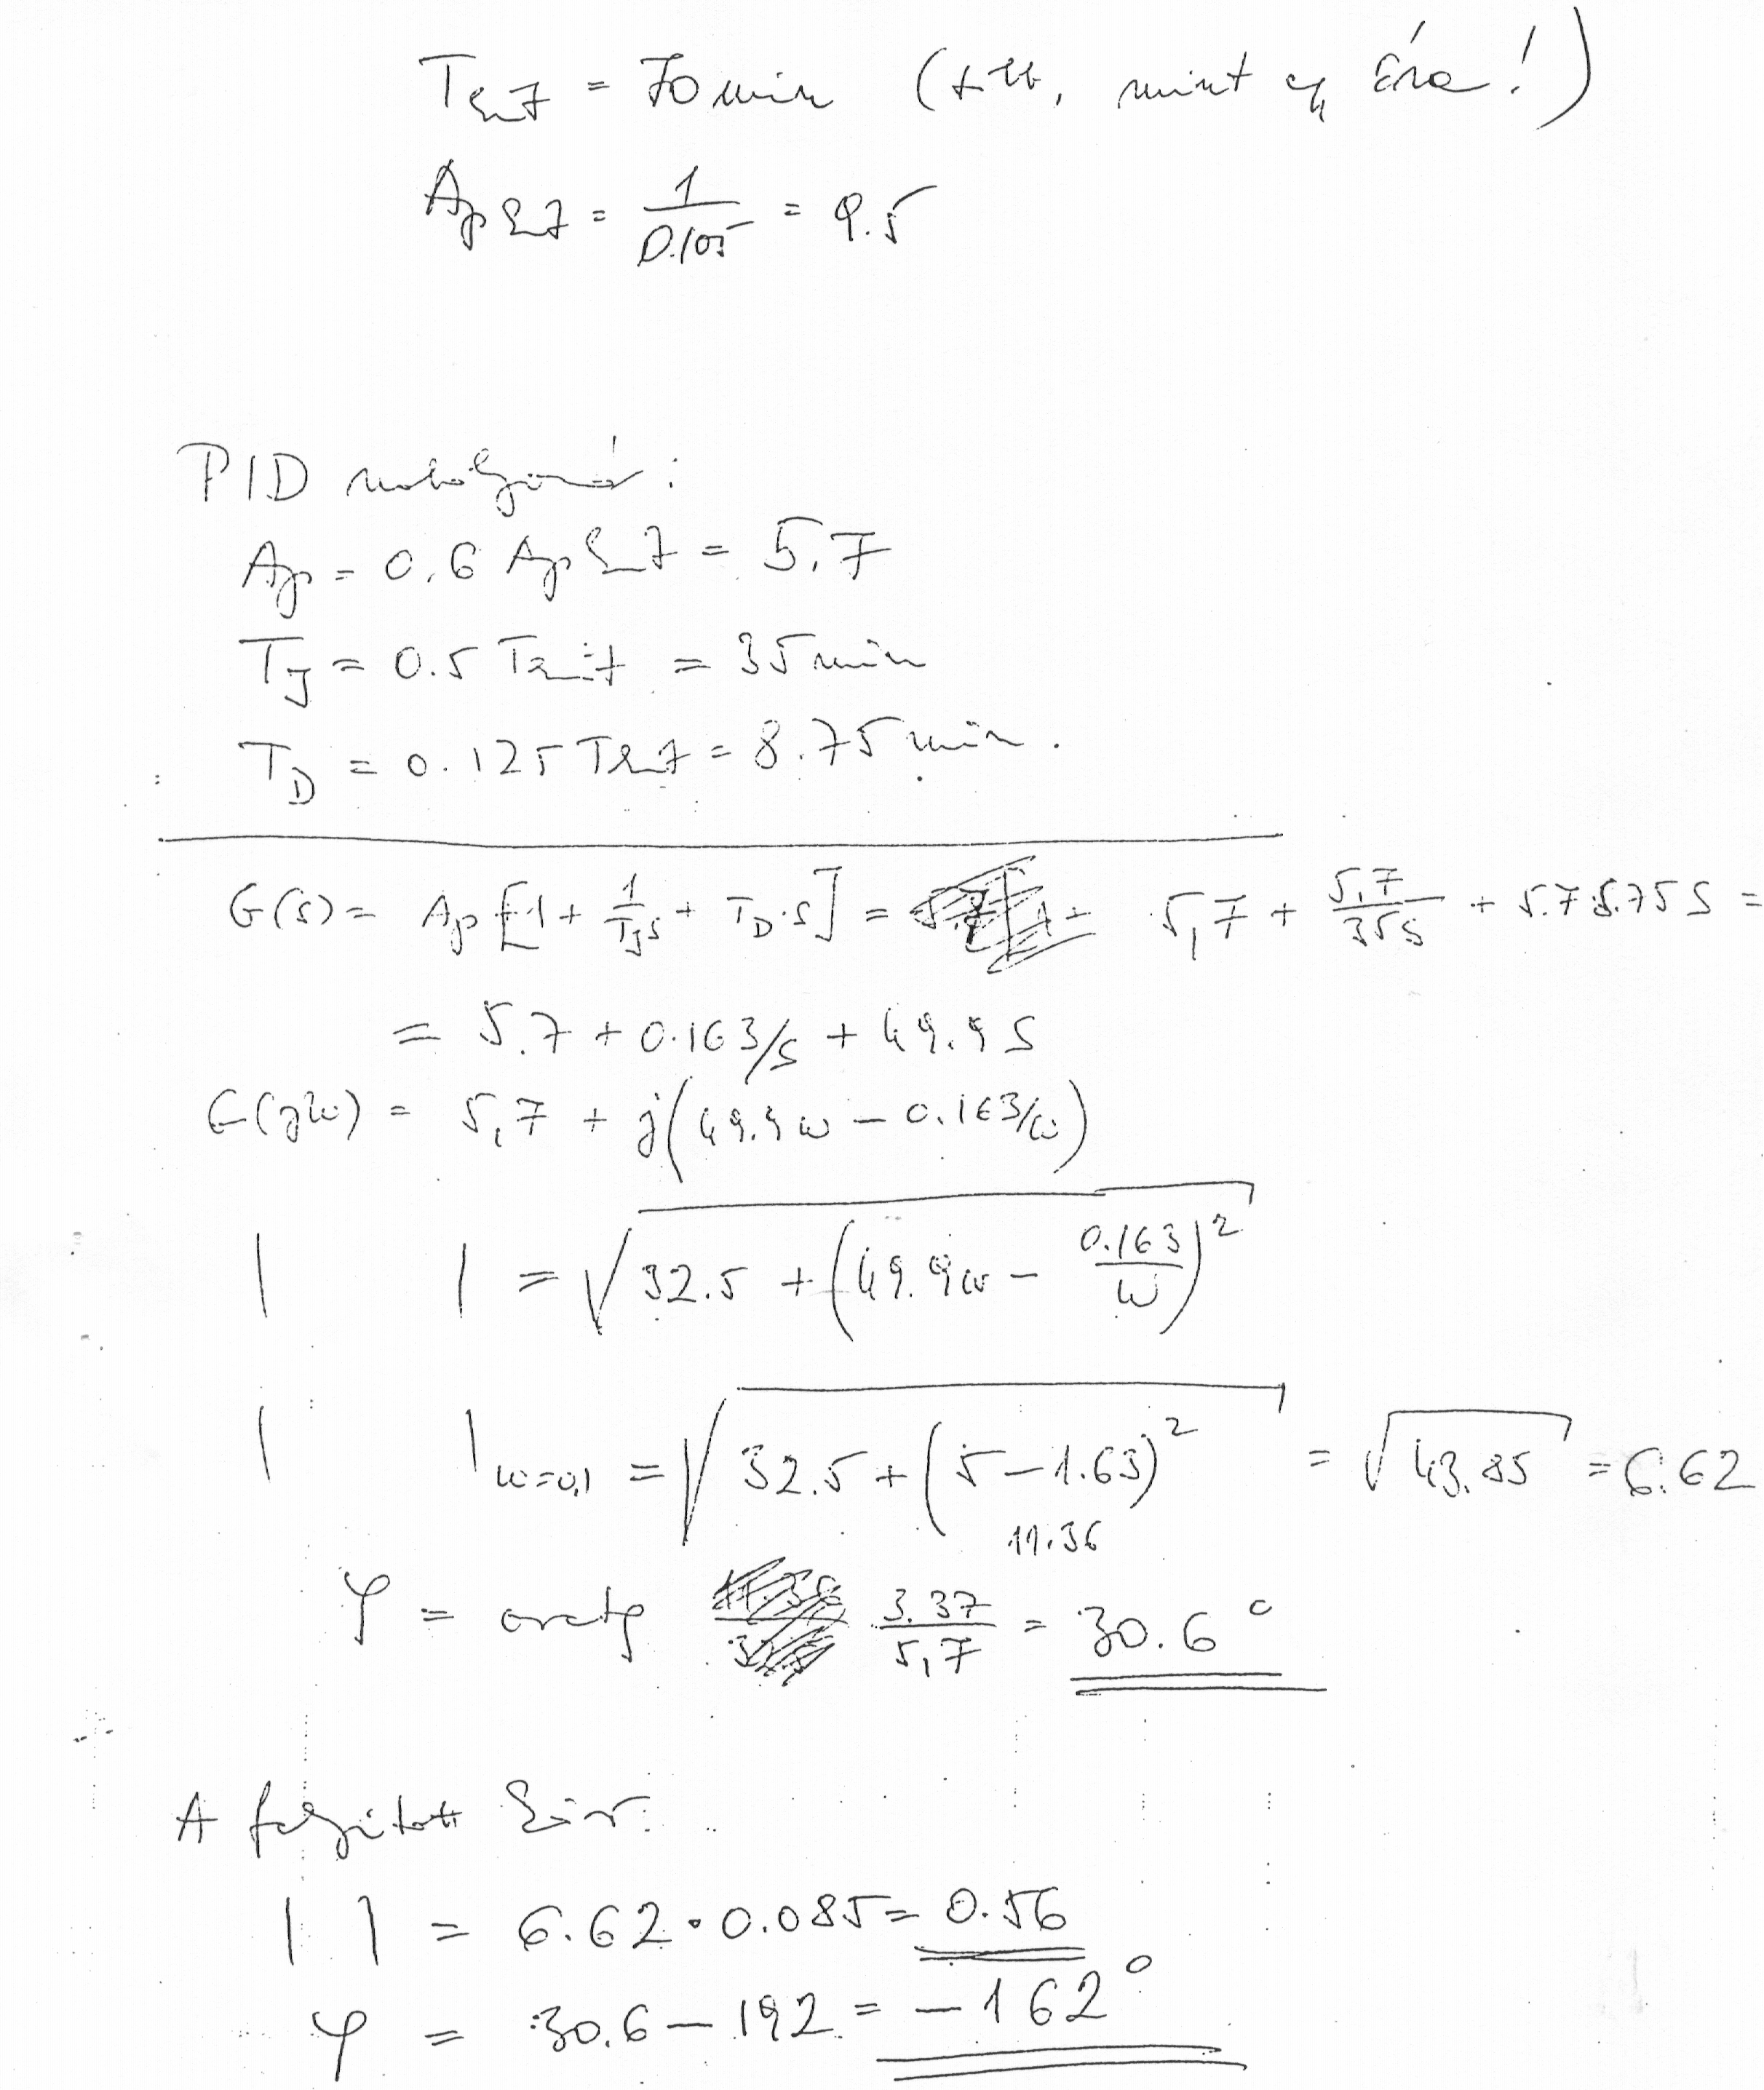 Tkrit = 70 min (több, mint egy óra!)
Apkrit = 1/0.105 = 9.5
PID szabályozó:
Ap = 0.6 Apkrit = 5.7
TI = 0.5 Tkrit = 35 min
TD = 0.125 Tkrit = 8.75 min.
G(s) = Ap [1 + 1/TIs + TD·s] = 5,7 + 5,7/35s + 5.7·8.75 s =
= 5.7 + 0.163/s + 49.9 s
G(jω) = 5,7 + j(49.9ω − 0.163/ω)
| | = √(32.5 + (49.9ω − 0.163/ω)²)
| |ω=0,1 = √(32.5 + (5−1.63)²) = √43.85 = 6.62
11.36
φ = arctg 3.37/5,7 = 30.6°
A felnyitott kör:
| | = 6.62 · 0.085 = 0.56
φ = 30.6 − 192 = −162°